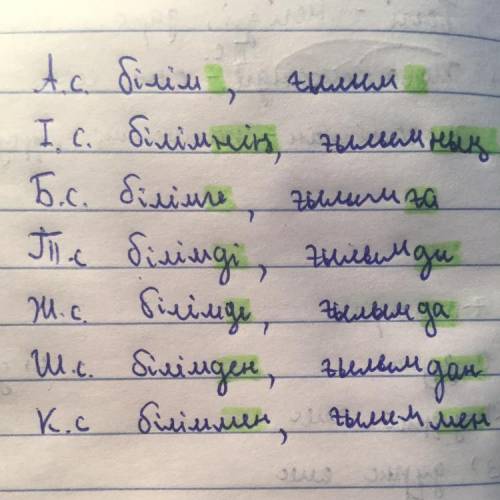 А.с. білім, ғылым
І.с. білімнің, ғылымның
Б.с. білімге, ғылымға
Т.с білімді, ғылымды
Ж.с. білімде, ғылымда
Ш.с. білімден, ғылымдан
К.с біліммен, ғылыммен